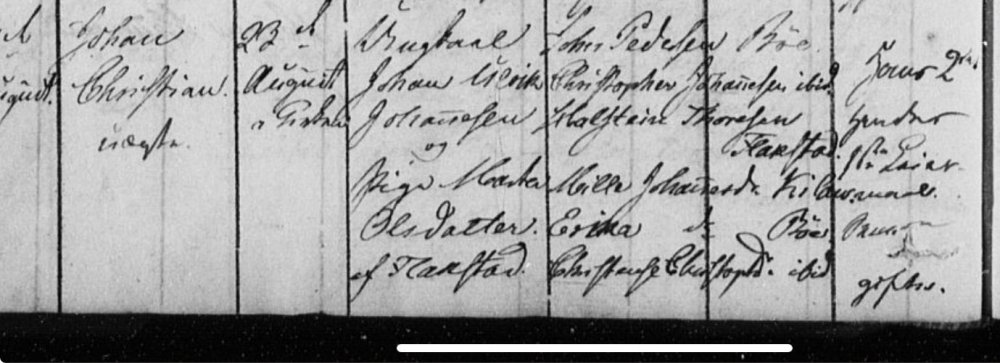 Johan
Christian.
uægte.
23 d
August
i Kirken
Ungkarl
Johan Ulrik
Johannesen
og
Pige Martha
Olsdatter.
af Flakstad.
John Pedersen Böe.
Christopher Johannesen ibid
Halstein Thoresen
Flakstad.
Mille Johannesd.
Erika d: Böe.
Christense Christophd. ibid
hendes
1ste Leier-
maal.
giftes.